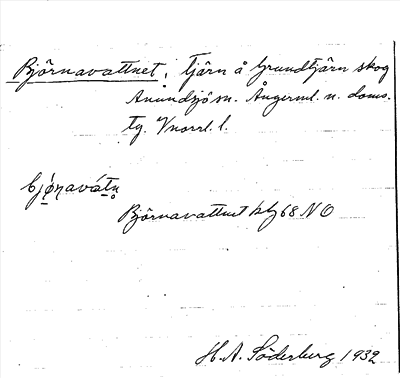 Björnavattnet, tjärn å Grundtjärn skog
Anundsjö sn. Ångerml. n. doms.
tg. Vnorrl. l.
bjǿn̥avátn̥
Björnavattnet kbl 68 NO
H. A. Söderberg 1932